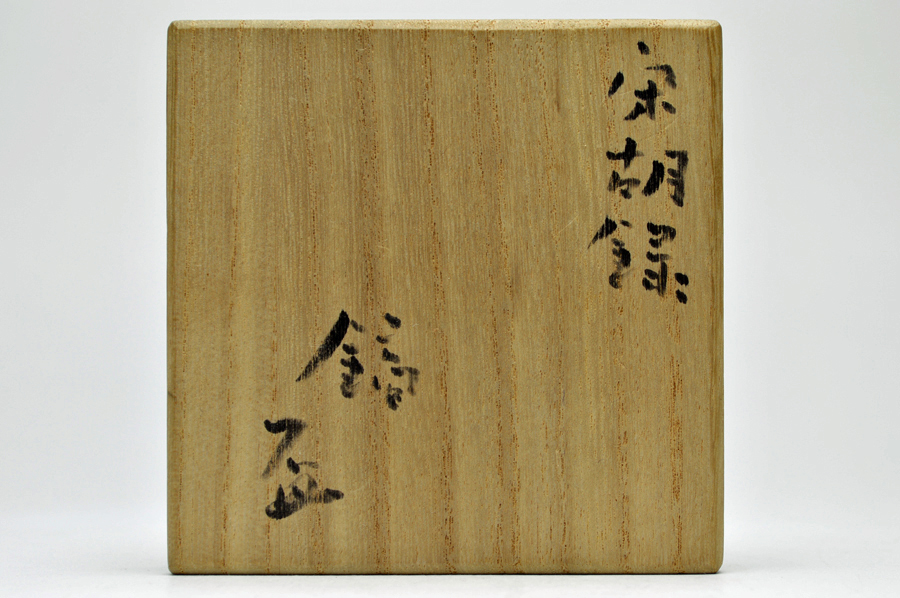 宋胡録
鎬
盃